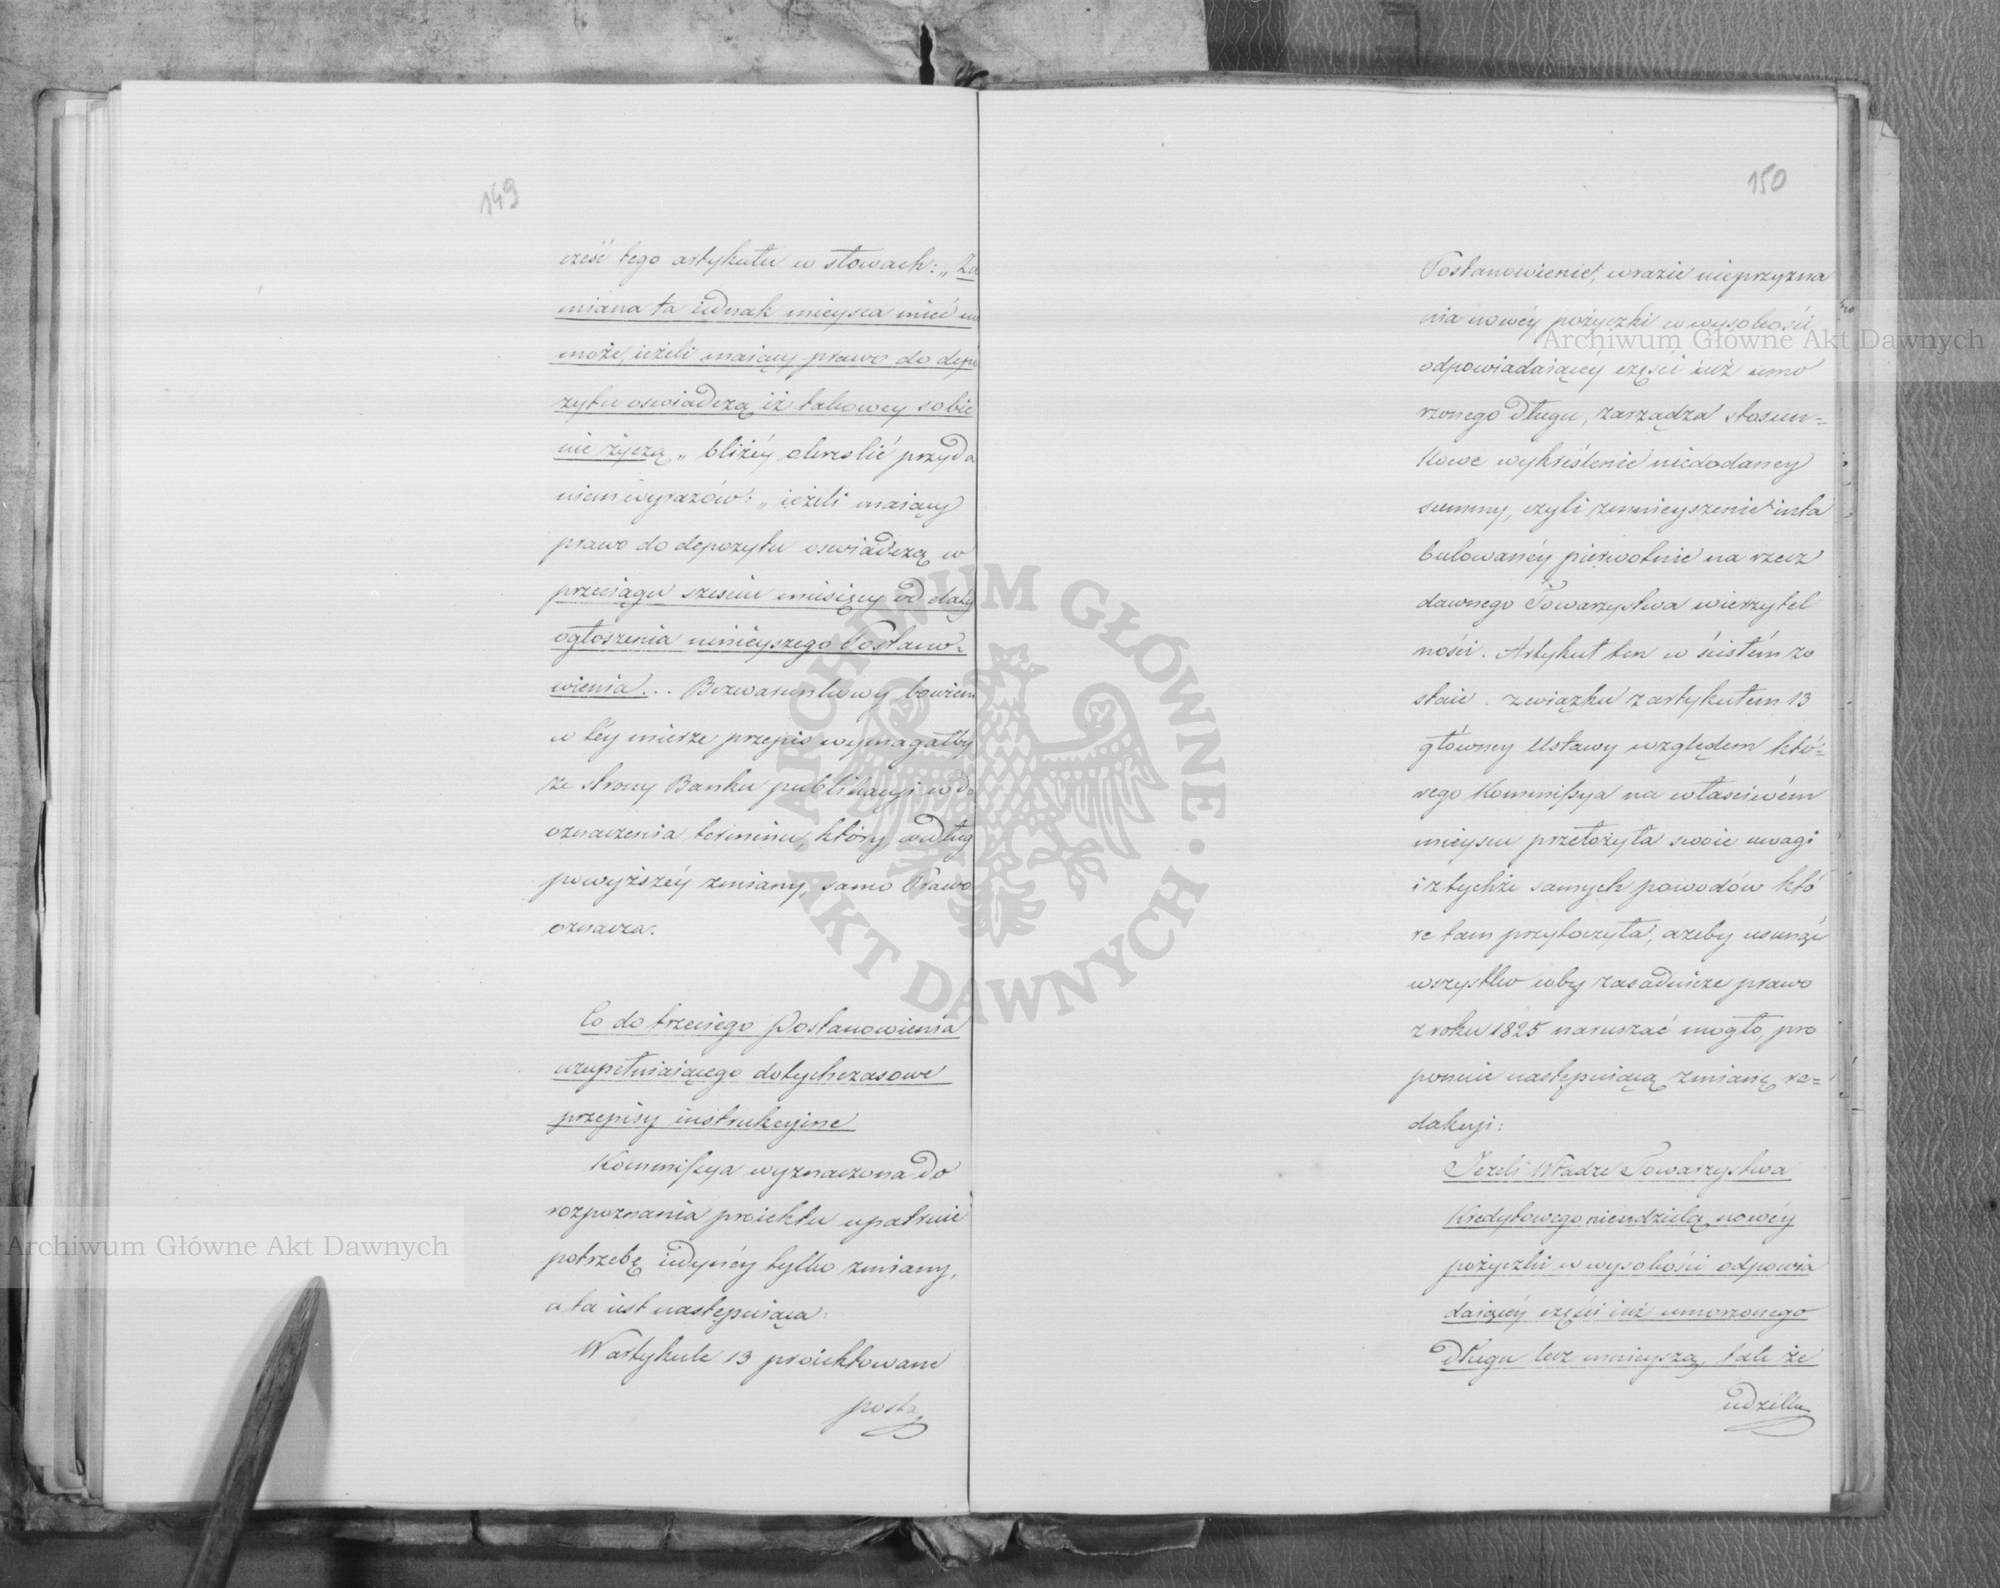 149
cześć tego artykułu w słowach: „Za
miana ta iednak mieysca mieć nie
może, ieżeli maiący prawo do depo
zytu oswiadczą iż takowey sobie
nie życzą „ bliżéy okreslić przyda
niem wyrazów: „ieżeli maiący
prawo do depozytu oswiadczą w
przeciągu sześciu miesięcy od daty
ogłoszenia ninieyszego Postano-
wienia... Bezwarunkowy bowiem
w téy mierze przepis wymagałby
ze strony Banku publikacyi i do
oznaczenia terminu, który według
powyższéy zmiany, samo Prawo
oznacza.
Co do trzeciego Postanowienia
uzupełniaiącego dotychczasowe
przepisy instrukcyine
Kommissya wyznaczona do
rozpoznania proiektu upatruie
potrzebę iedynéy tylko zmiany,
a ta iest następuiąca:
W artykule 13 proiektowane
posta
150
Postanowienie, w razie nieprzyzna
nia nowéy pożyczki w wysokości
odpowiadaiącéy części iuż umo
rzonego długu, zarządza stosun=
kowe wykréślenie niedodaney
summy, czyli zmnieyszenie inta
bulowanéy pierwotnie na rzecz
dawnego Towarzystwa wierzytel
ności. Artykuł ten w ścisłém zo
staie związku z artykułem 13
główney Ustawy względem któ=
rego Kommissya na właściwém
mieyscu przełożyła swoie uwagi
i z tychże samych powodów któ
re tam przytoczyła, ażeby usunąć
wszystko coby zasadnicze prawo
z roku 1825 naruszać mogło, pro
ponuie następuiącą zmianę re=
dakcyi:
Jeżeli Władze Towarzystwa
Kredytowego nieudzielą nowéy
pożyczki w wysokości odpowia
daiącéy części iuż umorzonego
długu lecz mnieyszą, tak że
udzielo
Archiwum Główne Akt Dawnych
Archiwum Główne Akt Dawnych
ARCHIWUM GŁÓWNE · AKT DAWNYCH ·